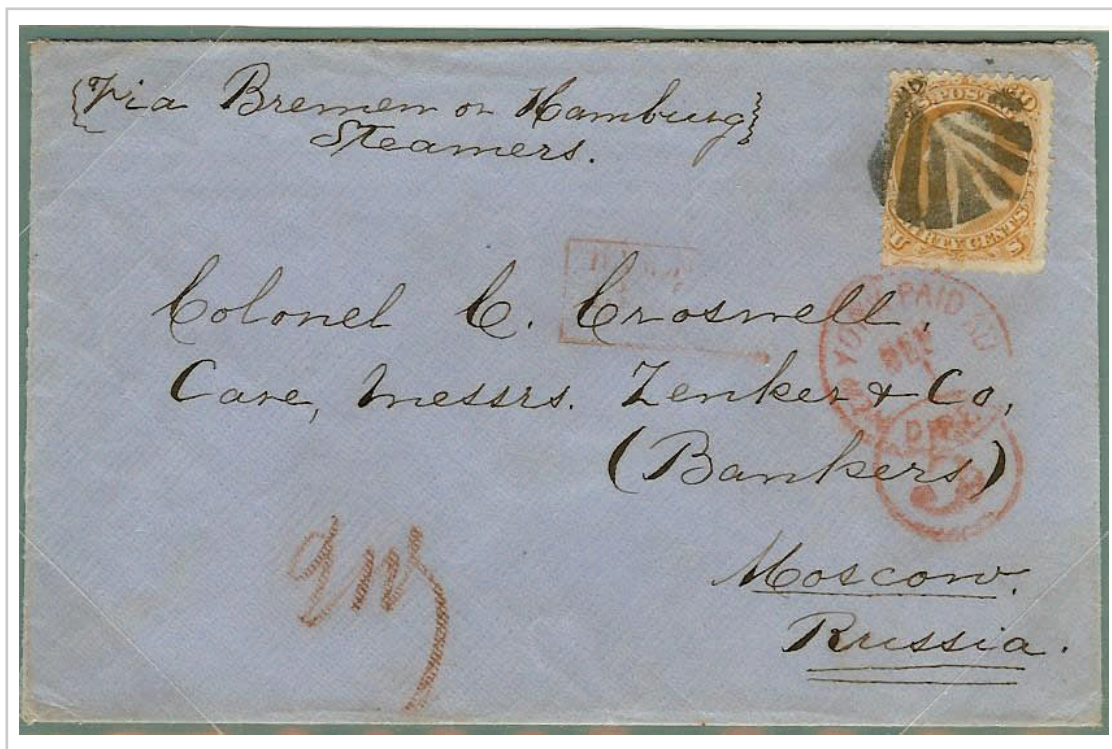 Via Bremen or Hamburg
Steamers.
POST
30
THIRTY CENTS
U S
Colonel C. Croswell.
PAID
Care, Messrs. Zenker & Co,
(Bankers)
DIRECT
Moscow.
Russia.